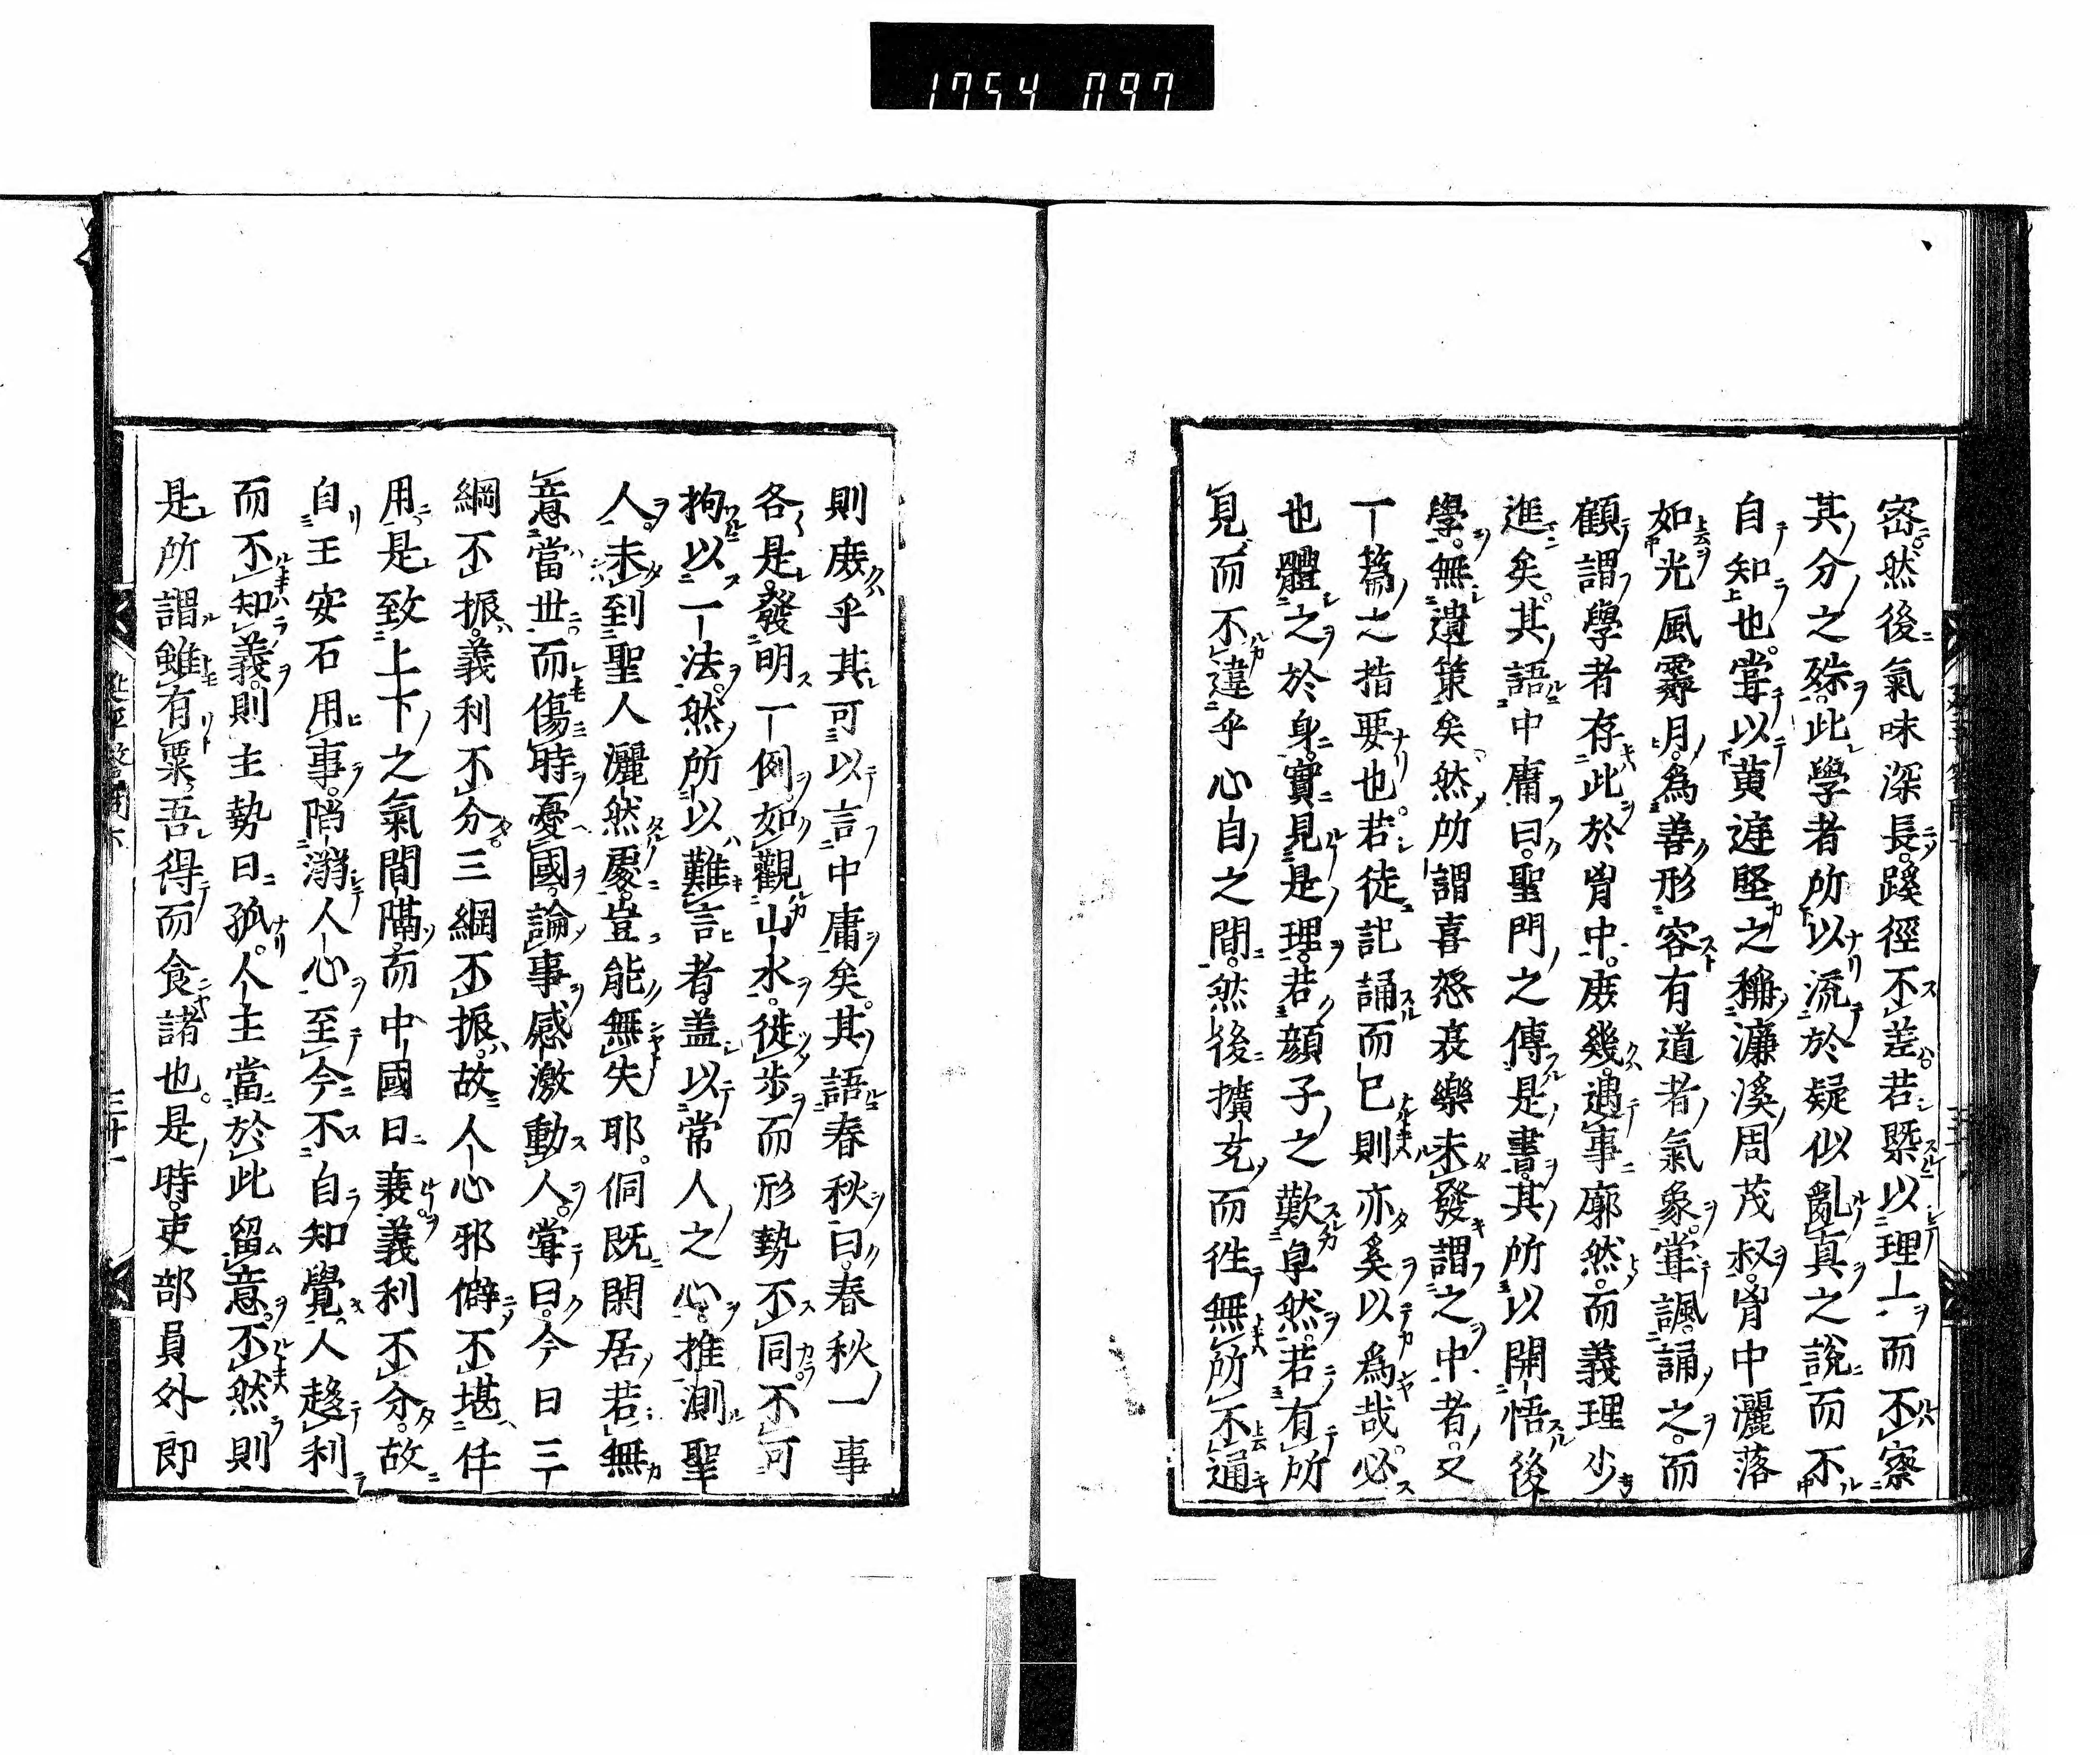 1754 097
密然後氣味深長蹊徑不差若槩以理一而不察
其分之殊此學者所以流於疑似亂真之說而不
自知也甞以黄庭堅之稱濂溪周茂叔胷中灑落
如光風霽月為善形容有道者氣象甞諷誦之而
顧謂學者存此於胷中庻幾遇事廓然而義理少
進矣其語中庸曰聖門之傳是書其所以開悟後
學無遺策矣然所謂喜怒哀樂未發謂之中者又
一篇之指要也若徒記誦而已則亦奚以為哉必
也體之於身實見是理若顔子之歎卓然若有所
見而不違乎心自之間然後擴充而徃無所不通
則庻乎其可以言中庸矣其語春秋曰春秋一事
各是發明一例如觀山水徙步而形勢不同不可
拘以一法然所以難言者盖以常人之心推測聖
人未到聖人灑然處豈能無失耶侗既閑居若無
意當世而傷時憂國論事感激動人甞曰今日三
綱不振義利不分三綱不振故人心邪僻不堪任
用是致上下之氣間隔而中國日衰義利不分故
自王安石用事陷溺人心至今不自知覺人趍利
而不知義則主勢日孤人主當於此留意不然則
是所謂雖有粟吾得而食諸也是時吏部員外郎
三十一